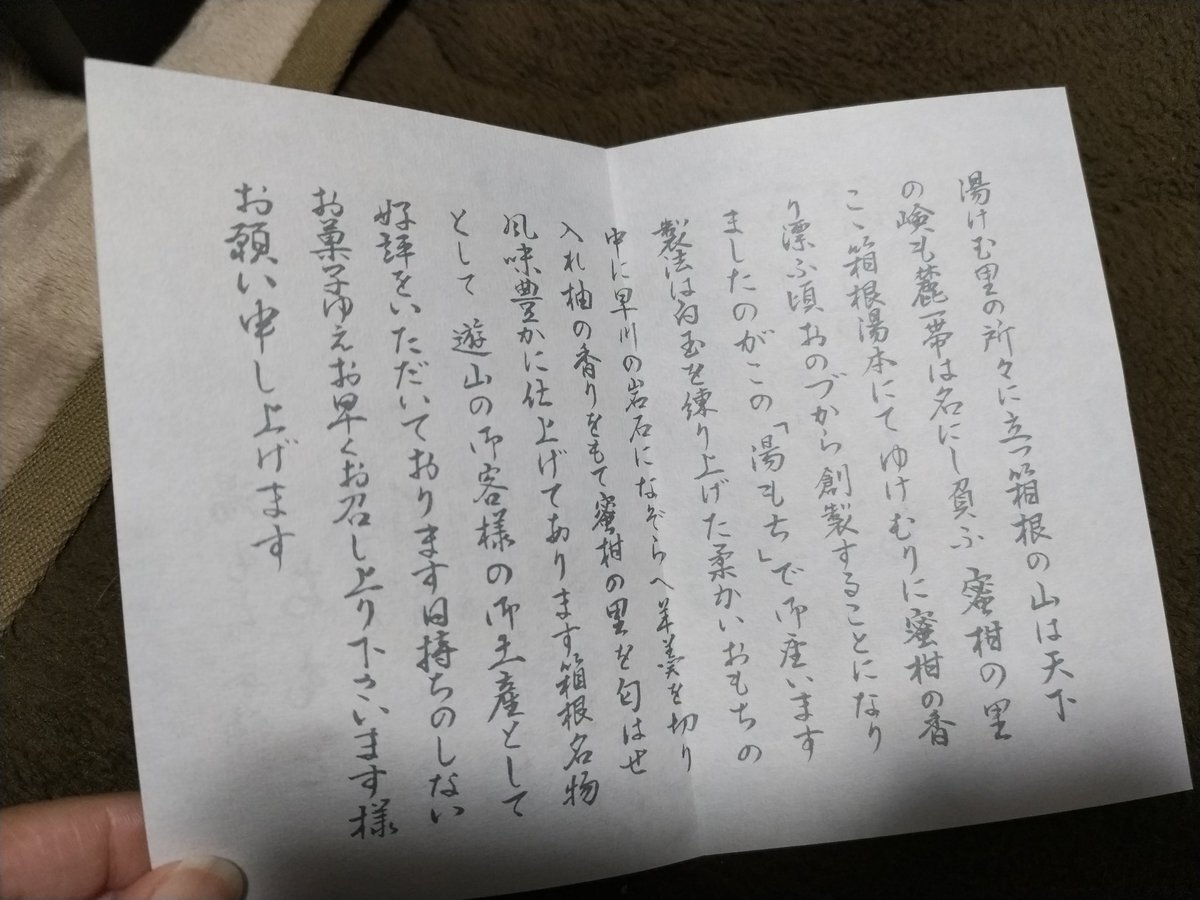 湯けむ里の所々に立つ箱根の山は天下
の嶮も麓一帯は名にし負ふ 蜜柑の里
こゝ箱根湯本にてゆけむりに蜜柑の香
り漂ふ頃おのづから創製することになり
ましたのがこの「湯もち」で御座います
製法は白玉を練り上げた柔かいおもちの
中に早川の岩石になぞらへ羊羹を切り
入れ柚の香りをもて蜜柑の里を匂はせ
風味豊かに仕上げてあります箱根名物
として 遊山の御客様の御土産として
好評をいただいております日持ちのしない
お菓子ゆえお早くお召し上り下さいます様
お願い申し上げます